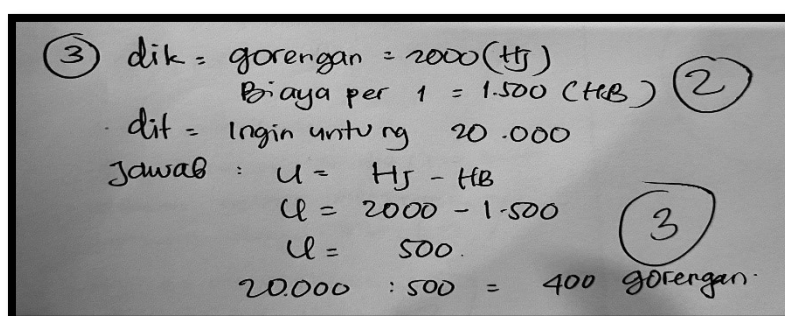 3 dik = gorengan = 2000 (HJ)
Biaya per 1 = 1.500 (HB) 2
dit = Ingin untung 20.000
Jawab : U = HJ - HB
U = 2000 - 1.500
U = 500. 3
20.000 : 500 = 400 gorengan.